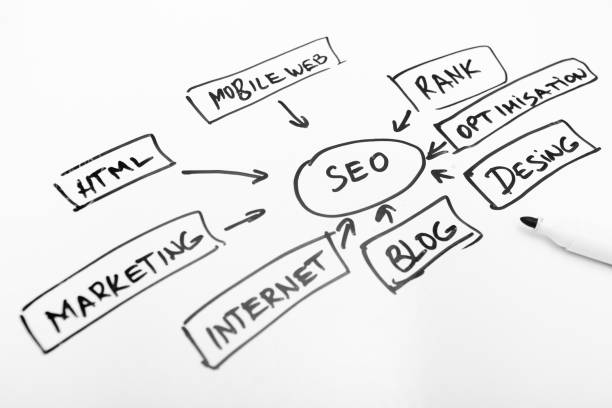 MOBILE WEB
RANK
OPTIMISATION
HTML
SEO
DESING
MARKETING
INTERNET
BLOG